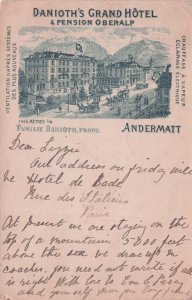 DANIOTH'S GRAND HÔTEL
& PENSION OBERALP
VENTILATION D'APRÈS SYSTÈMES
DES PLUS NOUVEAUX
CHAUFFAGE À VAPEUR
ÉCLAIRAGE ÉLECTRIQUE
1445 MÈTRES
FAMILIE DANIOTH, PROPR.
ANDERMATT
Dear Lizzie
Our address on friday will
be Hotel de Bade
Rue des Italiens
Paris
At present we are staying on the
top of a mountain 5000 feet
above the sea we drove up in
coaches, you need not write if all
is right with love to Tom & Percy
and yourself from